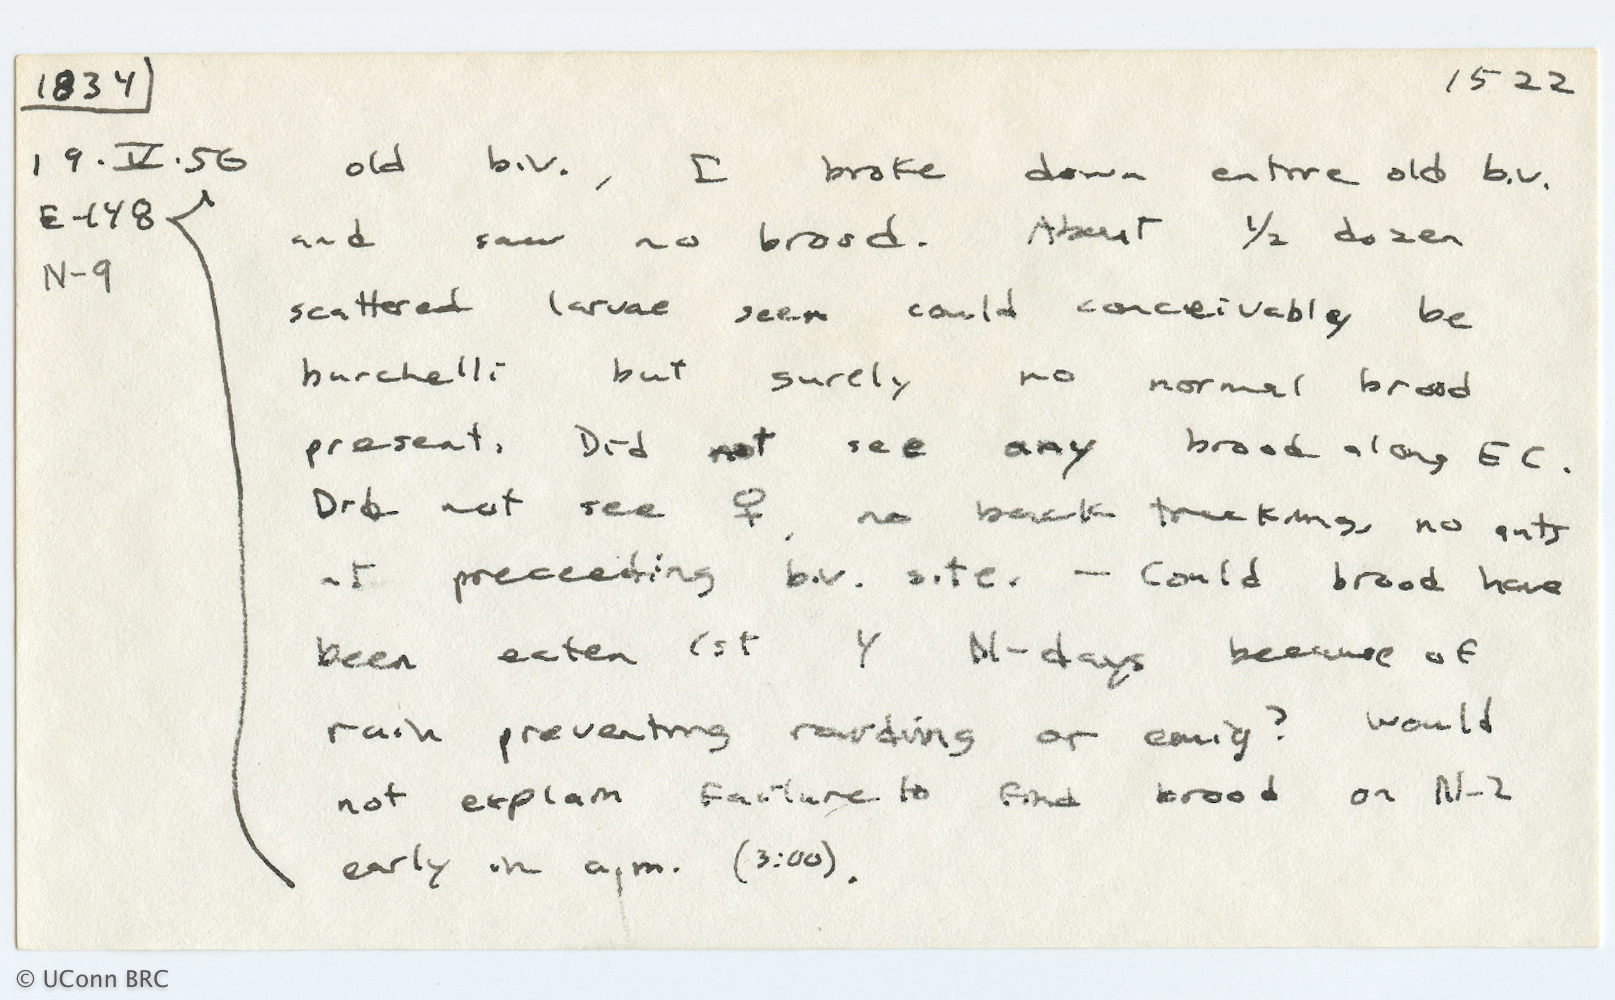 1834 1522
19.V.56 old b.v., I broke down entire old b.v.
E-148 and saw no brood. About 1/2 dozen
N-9
scattered larvae seen could conceivably be
burchelli but surely no normal brood
present. Did not see any brood along EC.
Did not see ♀, no back tracking, no ants
at preceeding b.v. site. — Could brood have
been eaten 1st 4 N-days because of
rain preventing raiding or emig? Would
not explain failure to find brood on N-2
early in a.m. (3:00).
© UConn BRC